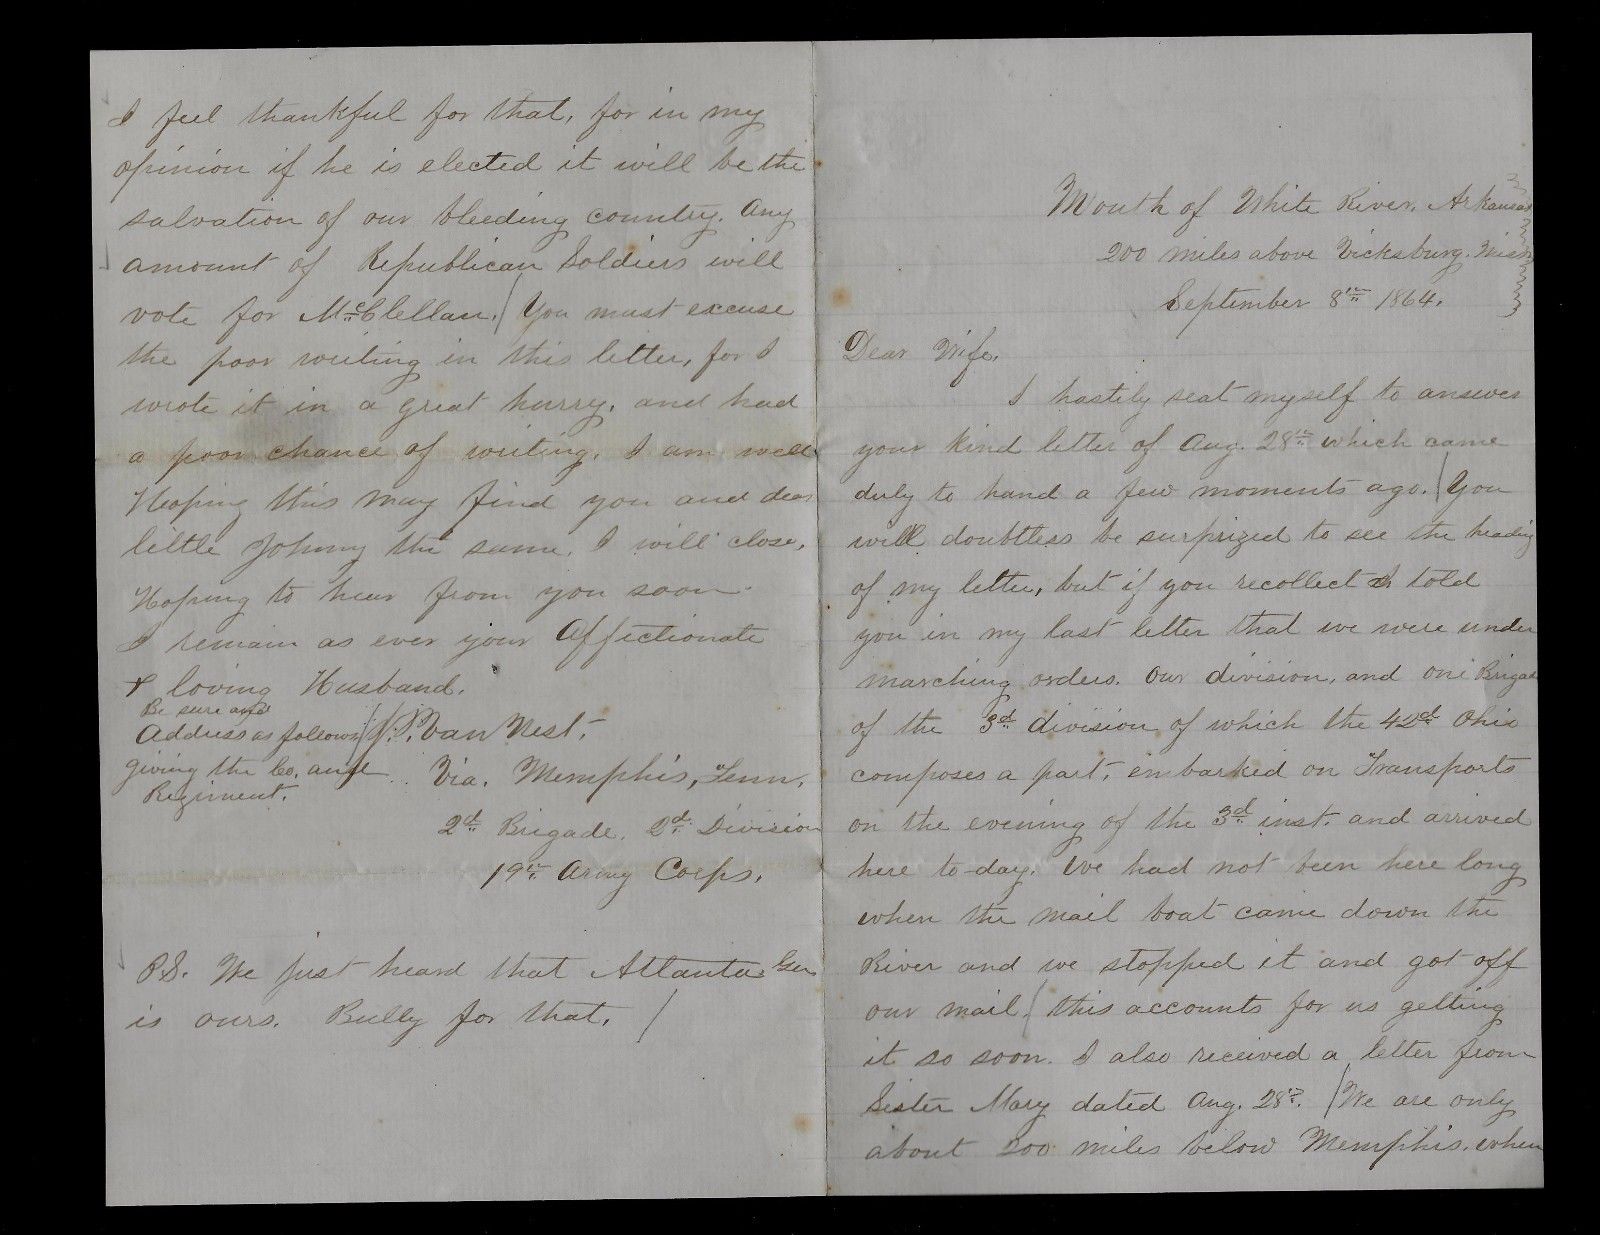 I feel thankful for that, for in my
opinion if he is elected it will be the
salvation of our bleeding country. Any
amount of Republican Soldiers will
vote for McClellan. / You must excuse
the poor writing in this letter, for I
wrote it in a great hurry, and had
a poor chance of writing. I am well
Hoping this may find you and dear
little Johnny the same. I will close,
Hoping to hear from you soon.
I remain as ever your Affectionate
& loving Husband.
Be sure and
Address as follows
giving the Co. and
Regiment.
Van Nest.
Via. Memphis, Tenn.
2d Brigade. 2d Division
19th Army Corps.
P.S. We just heard that Atlanta Geo
is ours. Bully for that. /
Mouth of White River, Arkansas
200 miles above Vicksburg. Miss
September 8th 1864.
Dear Wife,
I hastily seat myself to answer
your kind letter of Aug. 28th which came
duly to hand a few moments ago. / You
will doubtless be surprized to see the heading
of my letter, but if you recollect I told
you in my last letter that we were under
marching orders. Our division, and one Brigade
of the 3d division of which the 42d Ohio
composes a part, embarked on Transports
on the evening of the 3d inst. and arrived
here to-day. We had not been here long
when the mail boat came down the
River and we stopped it and got off
our mail. / this accounts for us getting
it so soon. I also received a letter from
Sister Mary dated Aug. 28th. / We are only
about 200 miles below Memphis, when